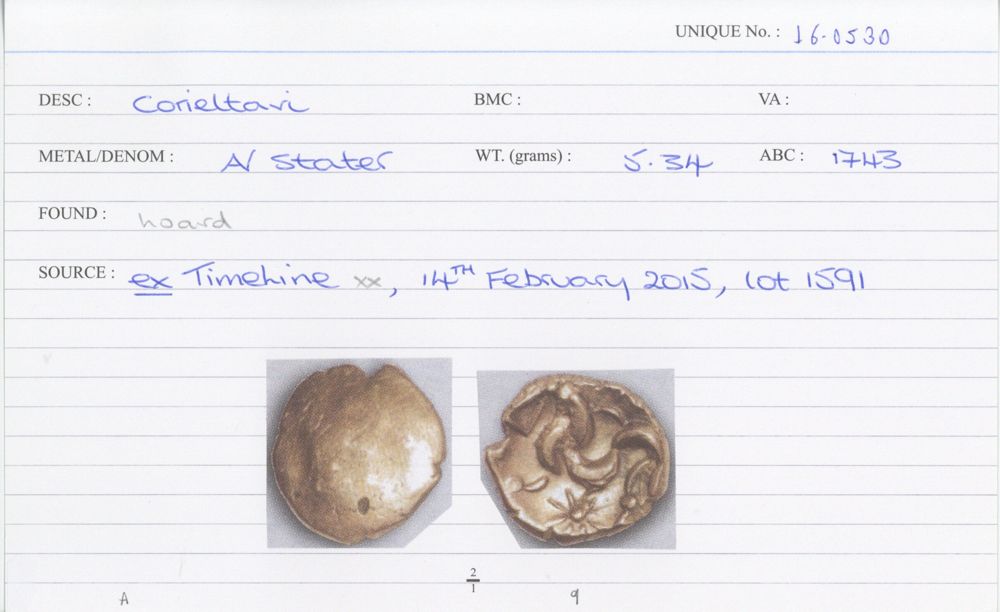 UNIQUE No. : 16-0530
DESC : Corieltavi BMC : VA :
METAL/DENOM : AV Stater WT. (grams) : 5.34 ABC : 1743
FOUND : hoard
SOURCE : ex Timeline xx, 14TH February 2015, lot 1591
2
1
A 9